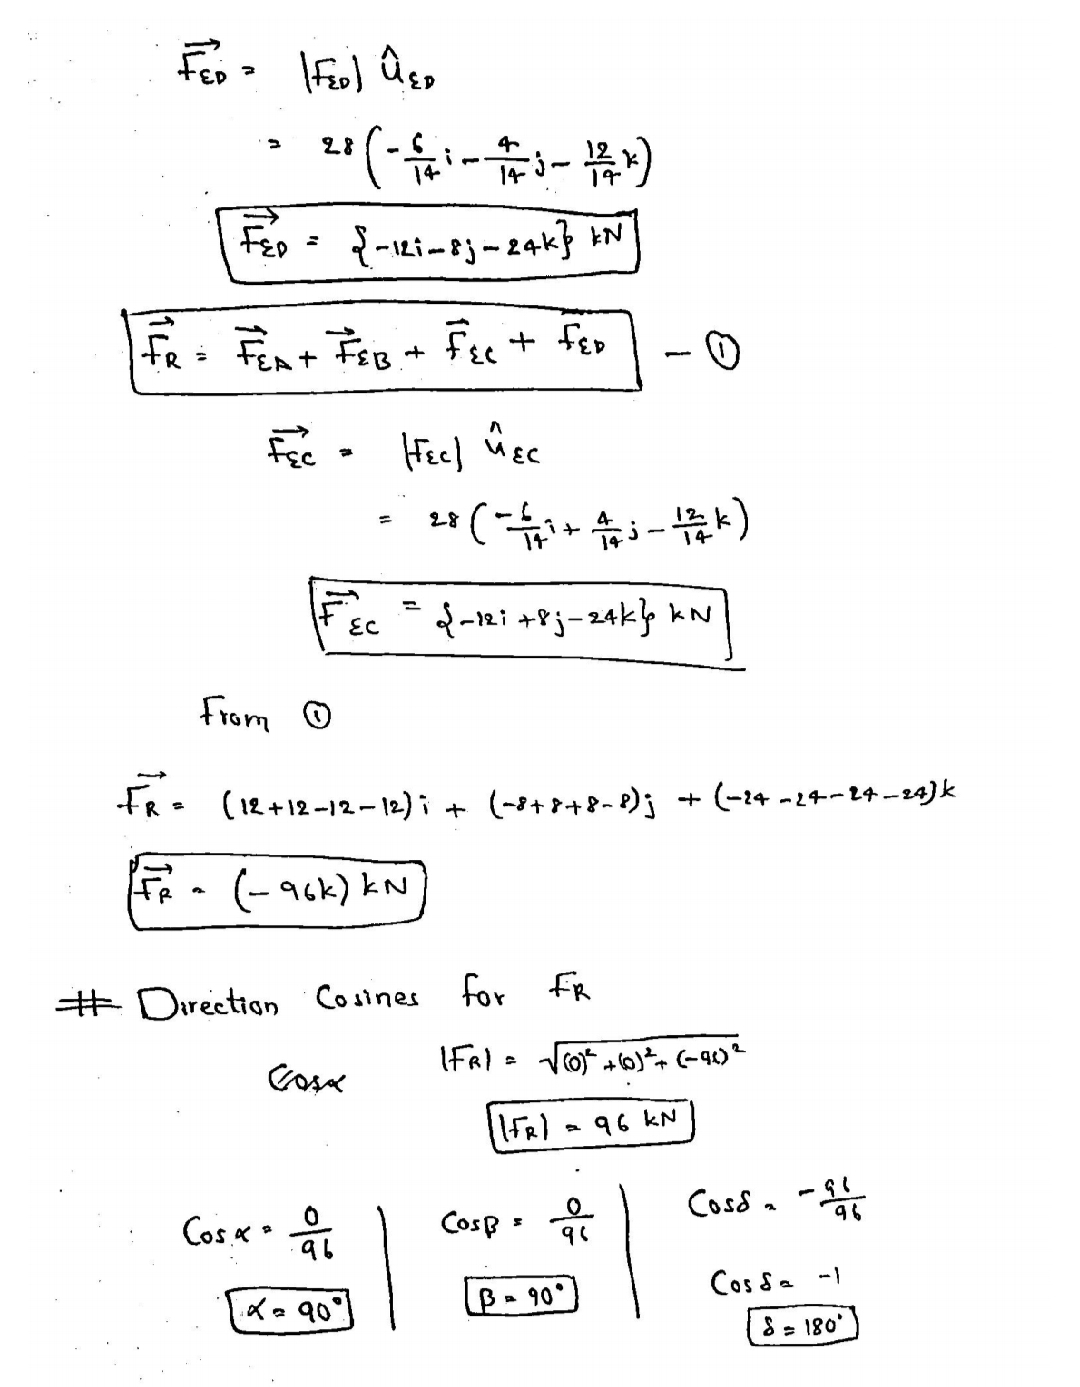 F⃗ED = |FED| ûED
= 28 (-6/14 i - 4/14 j - 12/14 k)
F⃗ED = {-12i-8j-24k} kN
F⃗R = F⃗EA + F⃗EB + F⃗EC + FED - ①
F⃗EC = |FEC| ûEC
= 28 (-6/14 i + 4/14 j - 12/14 k)
F⃗EC = {-12i+8j-24k} kN
From ①
F⃗R = (12+12-12-12)i + (-8+8+8-8)j + (-24-24-24-24)k
F⃗R = (-96k) kN
# Direction Cosines for FR
Cosα |FR| = √(0)²+(0)²+(-96)²
|FR| = 96 kN
Cosα = 0/96 | Cosβ = 0/96 | Cosδ = -96/96
Cosδ = -1
α = 90° β = 90° δ = 180°